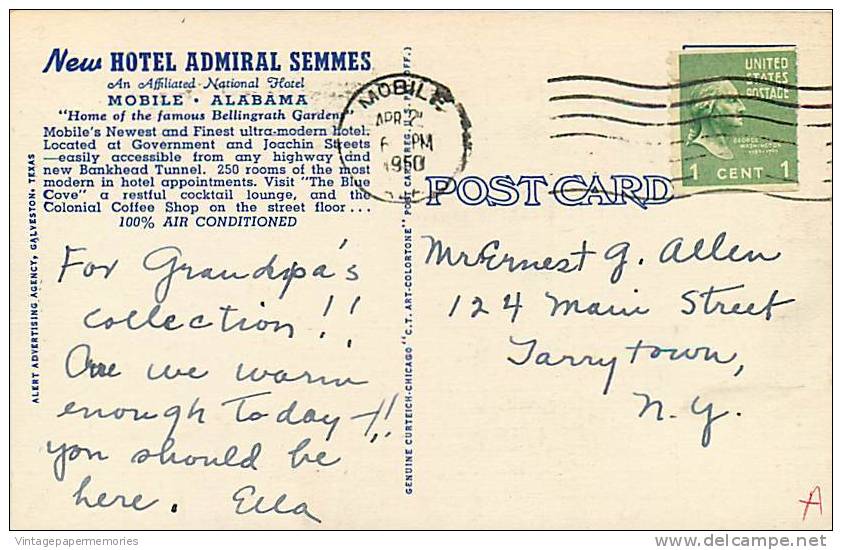 New HOTEL ADMIRAL SEMMES
An Affiliated National Hotel
MOBILE • ALABAMA
"Home of the famous Bellingrath Gardens"
Mobile's Newest and Finest ultra-modern hotel.
Located at Government and Joachin Streets
—easily accessible from any highway and
new Bankhead Tunnel. 250 rooms of the most
modern in hotel appointments. Visit "The Blue
Cove" a restful cocktail lounge, and the
Colonial Coffee Shop on the street floor...
100% AIR CONDITIONED
ALERT ADVERTISING AGENCY, GALVESTON, TEXAS
For Grandpa's
collection!!
Are we warm
enough today-!!
you should be
here. Ella
GENUINE CURTEICH-CHICAGO "C.T. ART-COLORTONE" POST CARD (REG. U.S. PAT. OFF.)
MOBILE
APR 2
6 PM
1950
UNITED
STATES
POSTAGE
GEORGE
WASHINGTON
1789-1797
1 CENT 1
POST CARD
Mr Ernest G. Allen
124 Main Street
Tarrytown,
N.Y.
A
Vintagepapermemories
delcampe.net